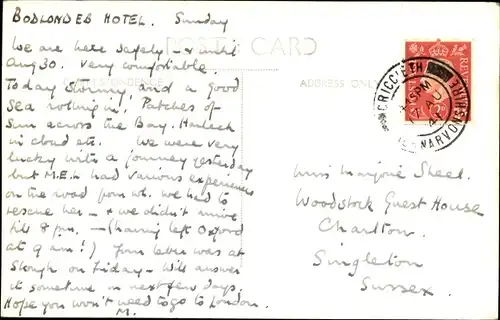 BODLONDEB HOTEL. Sunday
POST CARD
We are here safely - & until
Aug 30. Very comfortable.
CORRESPONDENCE
ADDRESS ONLY
Today Stormy, and a good
Sea rolling in. Patches of
Sun across the Bay. Harlech
in cloud etc. We were very
lucky with a journey yesterday
but M.E.L had various experiences
on the road from wh. we had to
rescue her - & we didn't arrive
till 8 pm. - (having left Oxford
at 9 am!) Your letter was at
Slough on Friday - Will answer
it sometime in next few days.
Hope you won't need to go to London.
M.
CRICCIETH
PM
17 AU
CAERNARVONSHIRE
REVENUE
Miss Marjorie Sheel.
Woodstock Guest House
Charlton.
Singleton
Sussex.